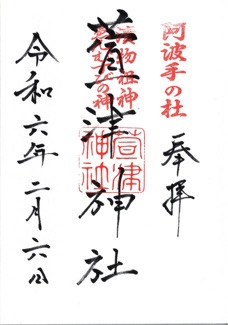 阿波手の杜
奉拝
漬物祖神
むすびの神
萱津神社
萱津神社
令和六年二月六日